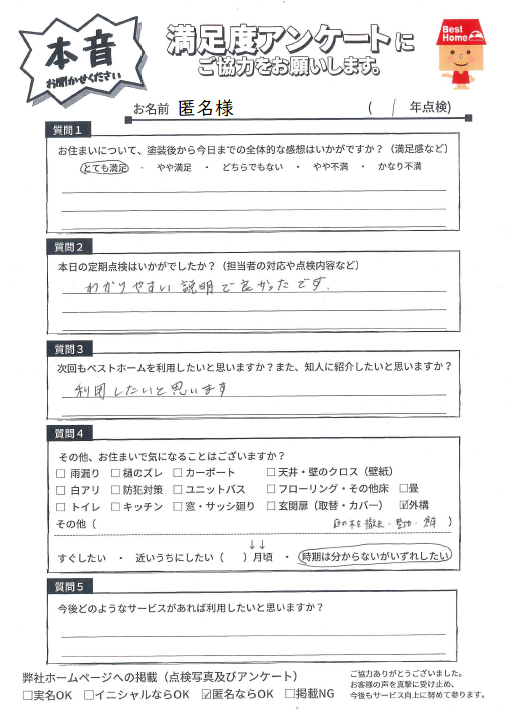 本音
お聞かせください
満足度アンケートに
ご協力をお願いします。
Best Home
お名前 匿名様 ( 1 年点検)
質問1
お住まいについて、塗装後から今日までの全体的な感想はいかがですか?(満足感など)
とても満足 ・ やや満足 ・ どちらでもない ・ やや不満 ・ かなり不満
質問2
本日の定期点検はいかがでしたか?(担当者の対応や点検内容など)
わかりやすい説明で良かったです.
質問3
次回もベストホームを利用したいと思いますか?また、知人に紹介したいと思いますか?
利用したいと思います
質問4
その他、お住まいで気になることはございますか?
□ 雨漏り □ 樋のズレ □ カーポート □ 天井・壁のクロス(壁紙)
□ 白アリ □ 防犯対策 □ ユニットバス □ フローリング・その他床 □畳
□ トイレ □ キッチン □ 窓・サッシ廻り □ 玄関扉(取替・カバー) ☑外構
その他( 庭の木を撤去・整地・ )
↓↓
すぐしたい ・ 近いうちにしたい( )月頃 ・ 時期は分からないがいずれしたい
質問5
今後どのようなサービスがあれば利用したいと思いますか?
弊社ホームページへの掲載(点検写真及びアンケート)
□実名OK □イニシャルならOK ☑匿名ならOK □掲載NG
ご協力ありがとうございました。
お客様の声を真摯に受け止め、
今後もサービス向上に努めて参ります。